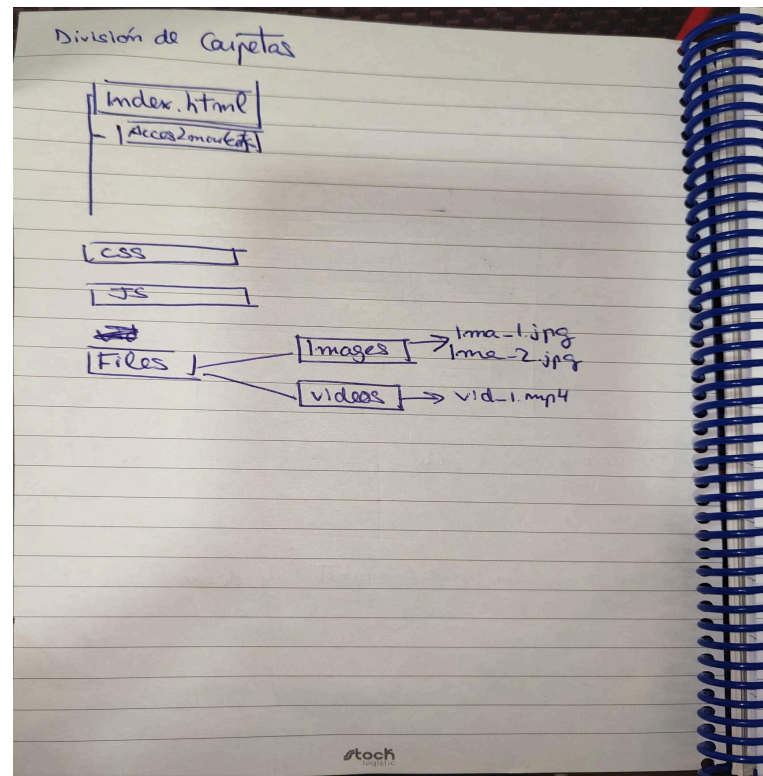 División de Carpetas
Index.html
CSS
JS
Files
Images
Ima_1.jpg
Ima_2.jpg
videos
vid_1.mp4
stock
logistic